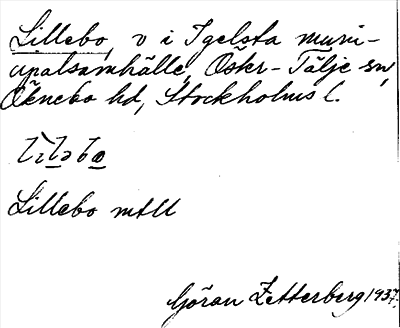 Lillebo, v i Igelsta muni-
cipalsamhälle, Öster-Tälje sn,
Öknebo hd, Stockholms l.
Lillebo mtll
Göran Zetterberg 1937.